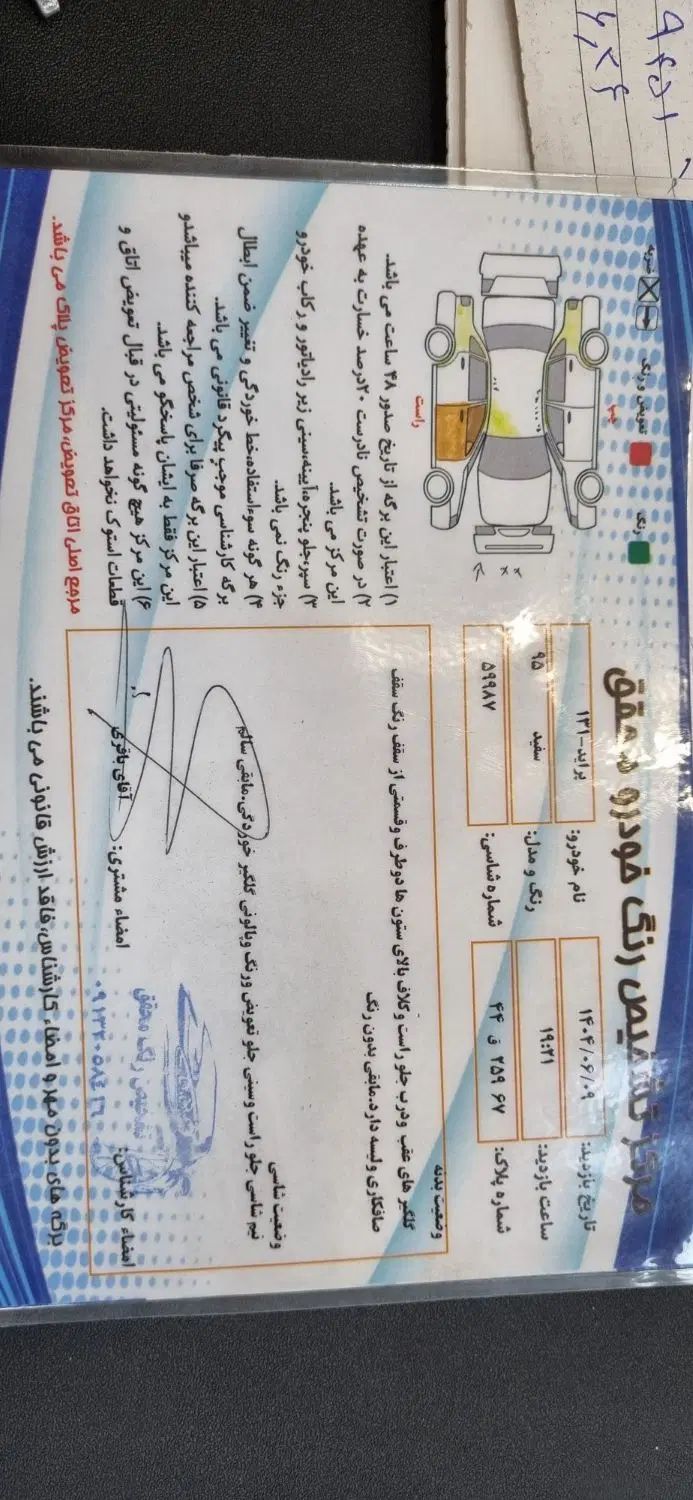 مرکز تشخیص رنگ خودرو محقق
تاریخ بازدید: ۱۴۰۴/۰۶/۰۹
نام خودرو: پراید-۱۳۱
ساعت بازدید: ۱۹:۲۱
رنگ و مدل: سفید ۹۵
شماره پلاک: ۴۴ ق ۲۵۹ ۶۷
شماره شاسی: ۵۹۹۸۷
رنگ
تعویض و رنگ
ضربه
چپ
راست
وضعیت بدنه
گلگیر های عقب ودرب جلو راست و کلاف بالای ستون ها دوطرف وقسمتی از سقف رنگ سقف
صافکاری ولیسه دارد.مابقی بدون رنگ
وضعیت شاسی
نیم شاسی جلو راست وسینی جلو تعویض ورنگ وپالونی گلگیر خوردگی.مابقی سالم
امضاء کارشناس:
تشخیص رنگ محقق
۰۹۱۳۲۰۵۸۴۱۶
امضاء مشتری: آقای باقری
۱) اعتبار این برگه از تاریخ صدور ۴۸ ساعت می باشد.
۲) در صورت تشخیص نادرست ۲۰درصد خسارت به عهده
این مرکز می باشد.
۳) سپر،جلو پنجره،آیینه،سینی زیر رادیاتور و رکاب خودرو
جزء رنگ نمی باشد.
۴) هر گونه سوءاستفاده،خط خوردگی و تغییر ضمن ابطال
برگه کارشناسی موجب پیگرد قانونی می باشد.
۵) اعتبار این برگه صرفا برای شخص مراجعه کننده میباشدو
این مرکز فقط به ایشان پاسخگو می باشد.
۶) این مرکز هیچ گونه مسئولیتی در قبال تعویض اتاق و
قطعات استوک نخواهد داشت.
مرجع اصلی اتاق تعویض،مرکز تعویض پلاک می باشد.
برگه های بدون مهر و امضاء کارشناس، فاقد ارزش قانونی می باشند.